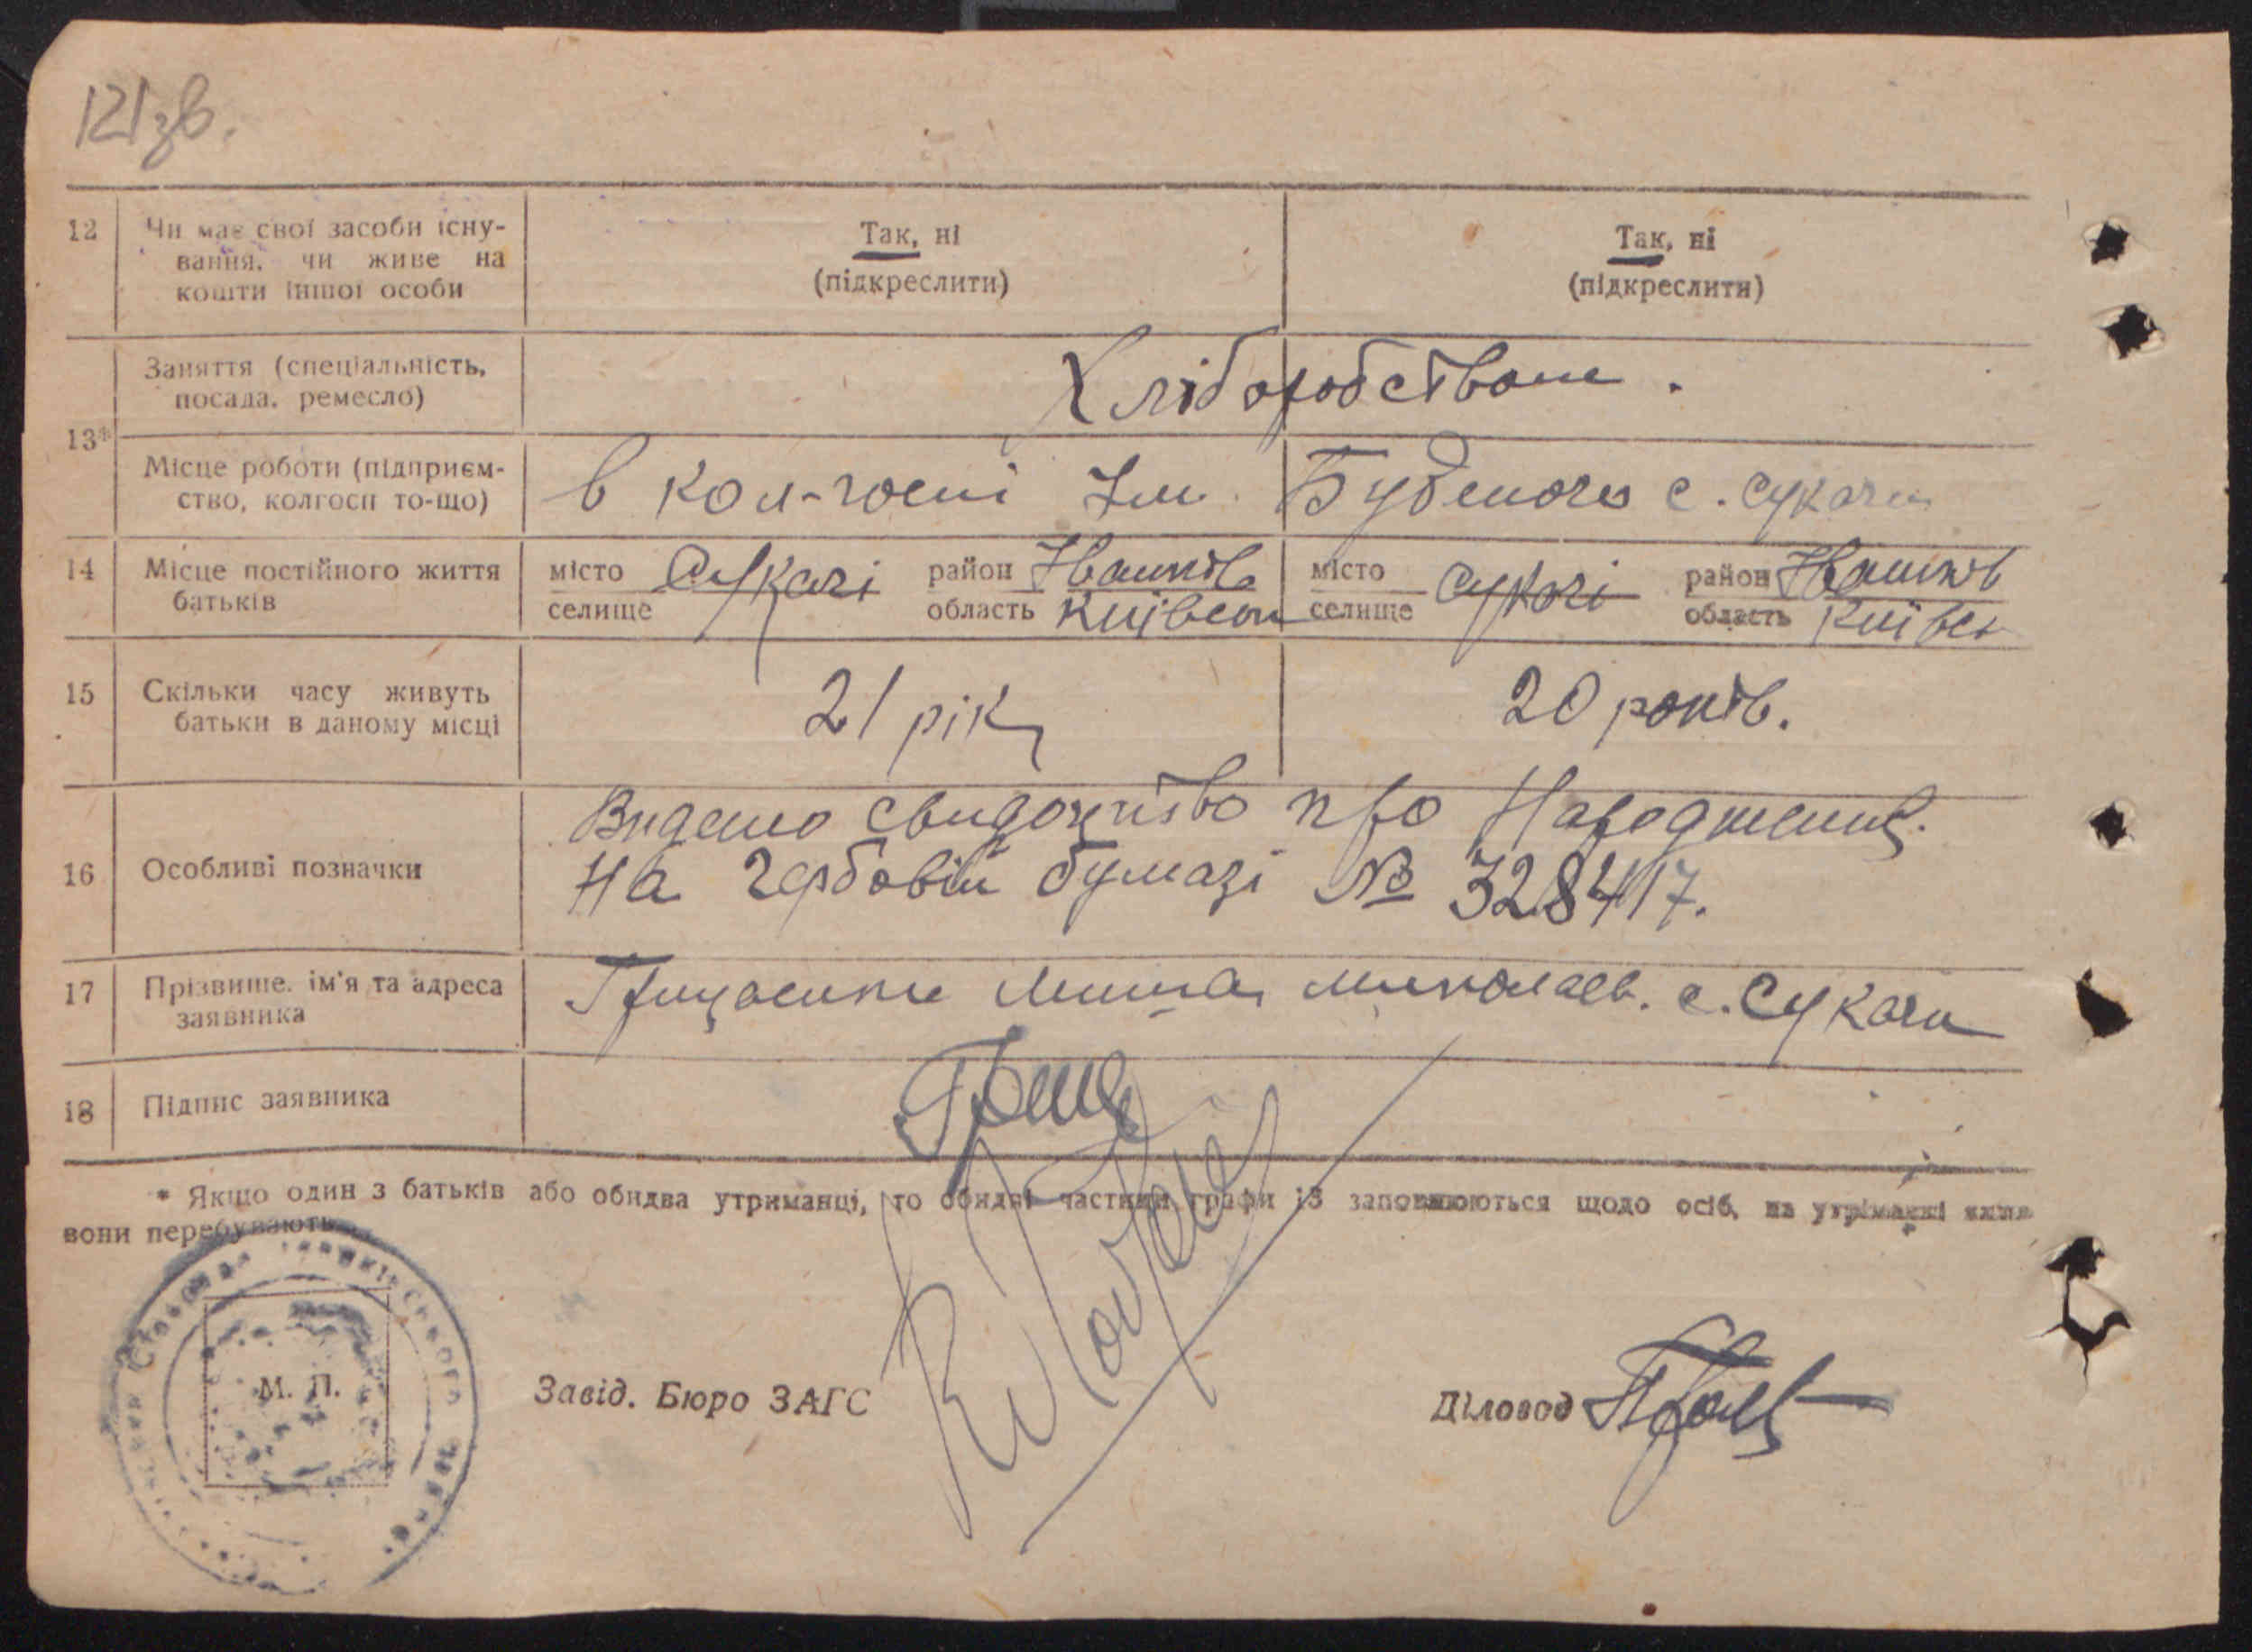 121 зв.
12 Чи має свої засоби існу-
вання, чи живе на
кошти іншої особи
Так, ні
(підкреслити)
Так, ні
(підкреслити)
13*
Заняття (спеціальність,
посада, ремесло)
Хліборобством.
Місце роботи (підприєм-
ство, колгосп то-що)
в кол-госпі Ім. Буденого с. Сукачи
14 Місце постійного життя
батьків
місто Сукачі район Іванків
селище область Київськ
місто Сукачі район Іванків
селище область Київск
15 Скільки часу живуть
батьки в даному місці
21 рік
20 років.
16 Особливі позначки
Видано свидоцтво про Народження.
На гербовій бумазі № 328417.
17 Прізвище, ім'я та адреса
заявника
Миколаев. с. Сукачи
18 Підпис заявника
* Якщо один з батьків або обидва утриманці, то обидві частини графи 13 заповнюються щодо осіб, на утриманні яких
вони перебувають.
М. П.
Завід. Бюро ЗАГС
Діловод